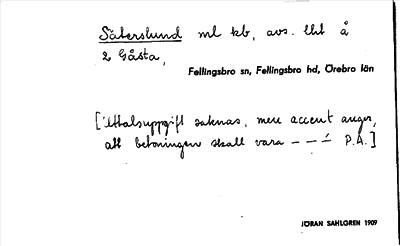 Säterslund ml kb, avs. lht å
2 Gåsta,
Fellingsbro sn, Fellingsbro hd, Örebro län
[Uttalsuppgift saknas, men accent anger,
att betoningen skall vara – – –́ P.A.]
JÖRAN SAHLGREN 1909